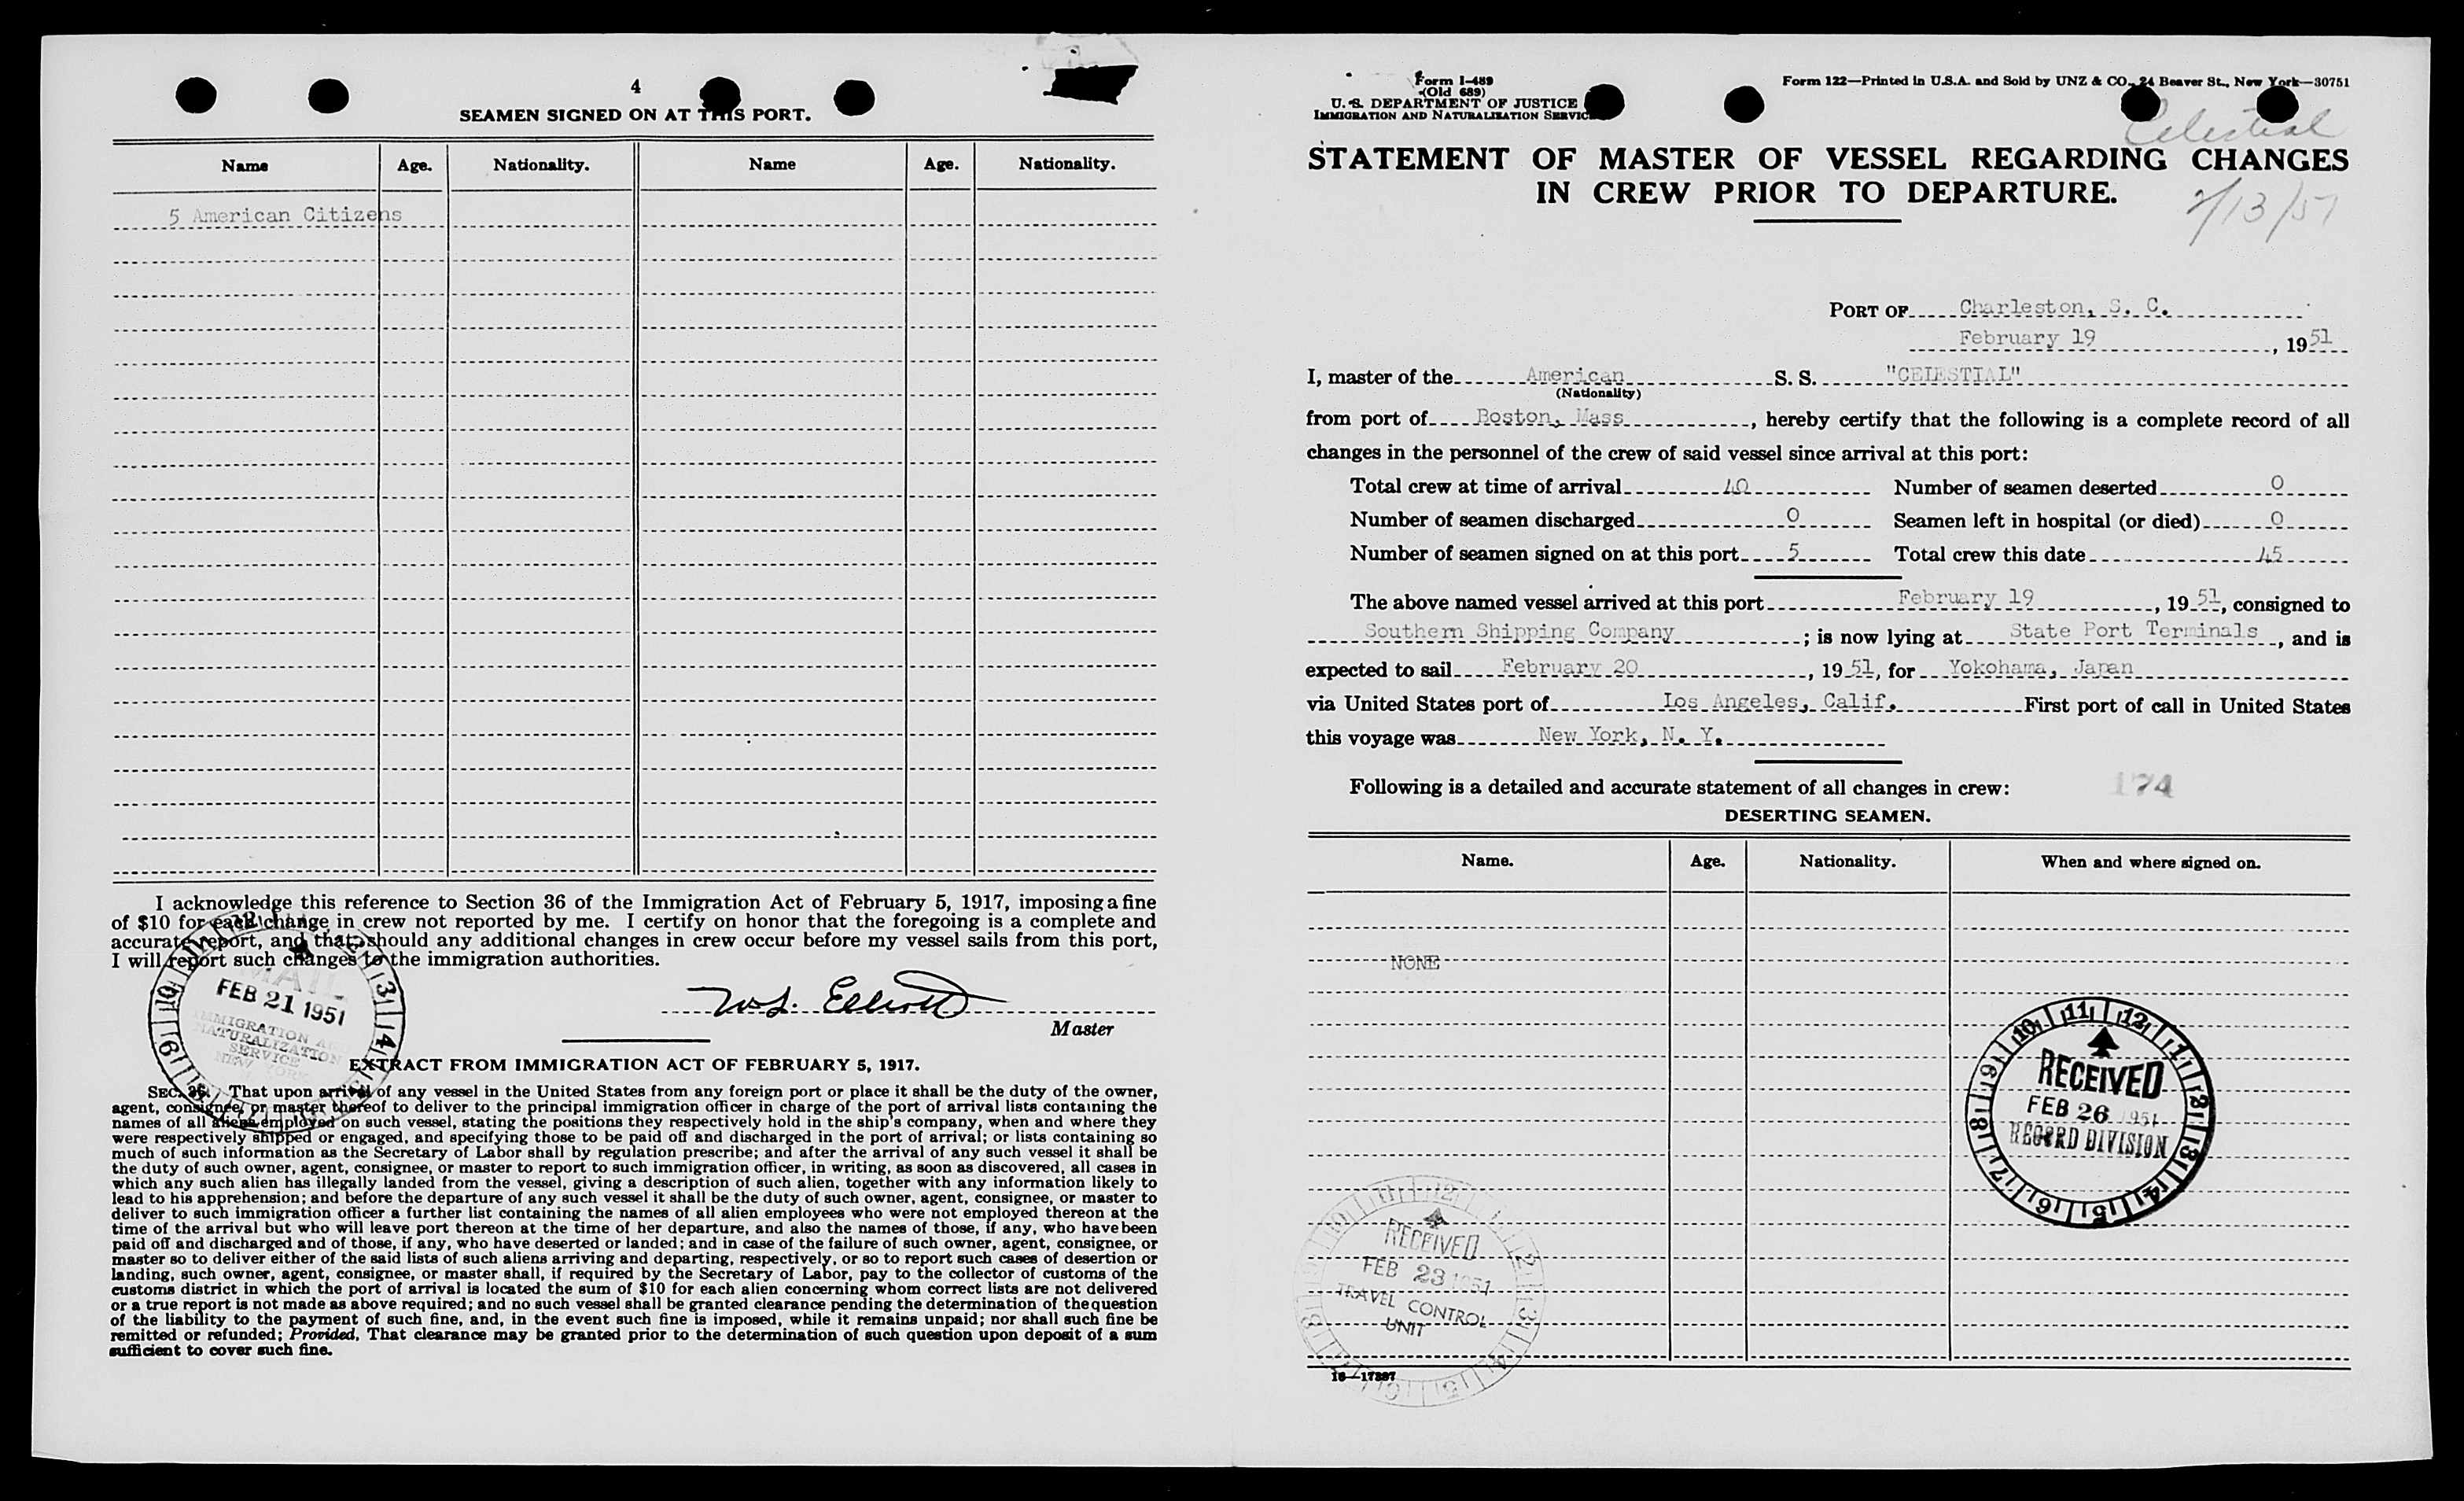 4
SEAMEN SIGNED ON AT THIS PORT.
Name Age. Nationality. Name Age. Nationality.
5 American Citizens
I acknowledge this reference to Section 36 of the Immigration Act of February 5, 1917, imposing a fine
of $10 for each change in crew not reported by me. I certify on honor that the foregoing is a complete and
accurate report, and that should any additional changes in crew occur before my vessel sails from this port,
I will report such changes to the immigration authorities.
MAIL
FEB 21 1951
IMMIGRATION
NATURALIZATION
SERVICE
NEW YORK
W. L. Elliott
Master
EXTRACT FROM IMMIGRATION ACT OF FEBRUARY 5, 1917.
SEC. 36. That upon arrival of any vessel in the United States from any foreign port or place it shall be the duty of the owner,
agent, consignee, or master thereof to deliver to the principal immigration officer in charge of the port of arrival lists containing the
names of all aliens employed on such vessel, stating the positions they respectively hold in the ship's company, when and where they
were respectively shipped or engaged, and specifying those to be paid off and discharged in the port of arrival; or lists containing so
much of such information as the Secretary of Labor shall by regulation prescribe; and after the arrival of any such vessel it shall be
the duty of such owner, agent, consignee, or master to report to such immigration officer, in writing, as soon as discovered, all cases in
which any such alien has illegally landed from the vessel, giving a description of such alien, together with any information likely to
lead to his apprehension; and before the departure of any such vessel it shall be the duty of such owner, agent, consignee, or master to
deliver to such immigration officer a further list containing the names of all alien employees who were not employed thereon at the
time of the arrival but who will leave port thereon at the time of her departure, and also the names of those, if any, who have been
paid off and discharged and of those, if any, who have deserted or landed; and in case of the failure of such owner, agent, consignee, or
master so to deliver either of the said lists of such aliens arriving and departing, respectively, or so to report such cases of desertion or
landing, such owner, agent, consignee, or master shall, if required by the Secretary of Labor, pay to the collector of customs of the
customs district in which the port of arrival is located the sum of $10 for each alien concerning whom correct lists are not delivered
or a true report is not made as above required; and no such vessel shall be granted clearance pending the determination of the question
of the liability to the payment of such fine, and, in the event such fine is imposed, while it remains unpaid; nor shall such fine be
remitted or refunded; Provided, That clearance may be granted prior to the determination of such question upon deposit of a sum
sufficient to cover such fine.
Form I-489
(Old 689)
U. S. DEPARTMENT OF JUSTICE
IMMIGRATION AND NATURALIZATION SERVICE
Form 122—Printed in U.S.A. and Sold by UNZ & CO., 24 Beaver St., New York—30751
Celestial
STATEMENT OF MASTER OF VESSEL REGARDING CHANGES
IN CREW PRIOR TO DEPARTURE.
2/13/51
PORT OF Charleston, S. C.
February 19, 1951
I, master of the American S. S. "CELESTIAL"
(Nationality)
from port of Boston, Mass, hereby certify that the following is a complete record of all
changes in the personnel of the crew of said vessel since arrival at this port:
Total crew at time of arrival 40 Number of seamen deserted 0
Number of seamen discharged 0 Seamen left in hospital (or died) 0
Number of seamen signed on at this port 5 Total crew this date 45
The above named vessel arrived at this port February 19, 1951, consigned to
Southern Shipping Company; is now lying at State Port Terminals, and is
expected to sail February 20, 1951, for Yokohama, Japan
via United States port of Los Angeles, Calif. First port of call in United States
this voyage was New York, N. Y.
Following is a detailed and accurate statement of all changes in crew: 174
DESERTING SEAMEN.
Name. Age. Nationality. When and where signed on.
NONE
RECEIVED
FEB 26 1951
RECORD DIVISION
RECEIVED
FEB 23 1951
TRAVEL CONTROL
UNIT
16—17397